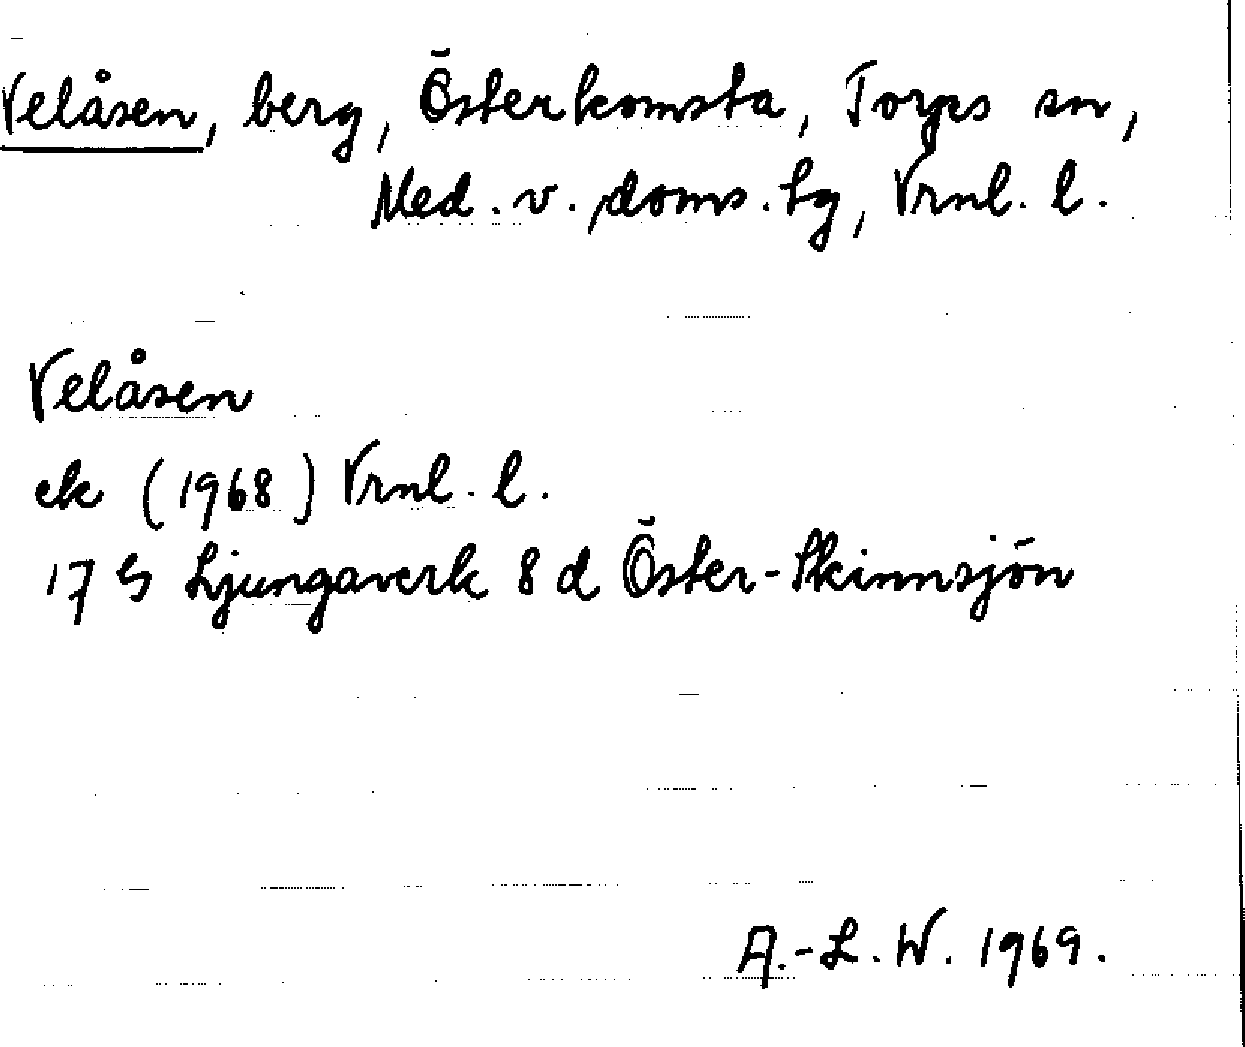 Velåsen, berg, Österkomsta, Torps sn,
Med. v. doms. tg, Vrnl. l.
Velåsen
ek (1968) Vrnl. l.
17 G Ljungaverk 8 d Öster-Skinnsjön
A.-L. W. 1969.